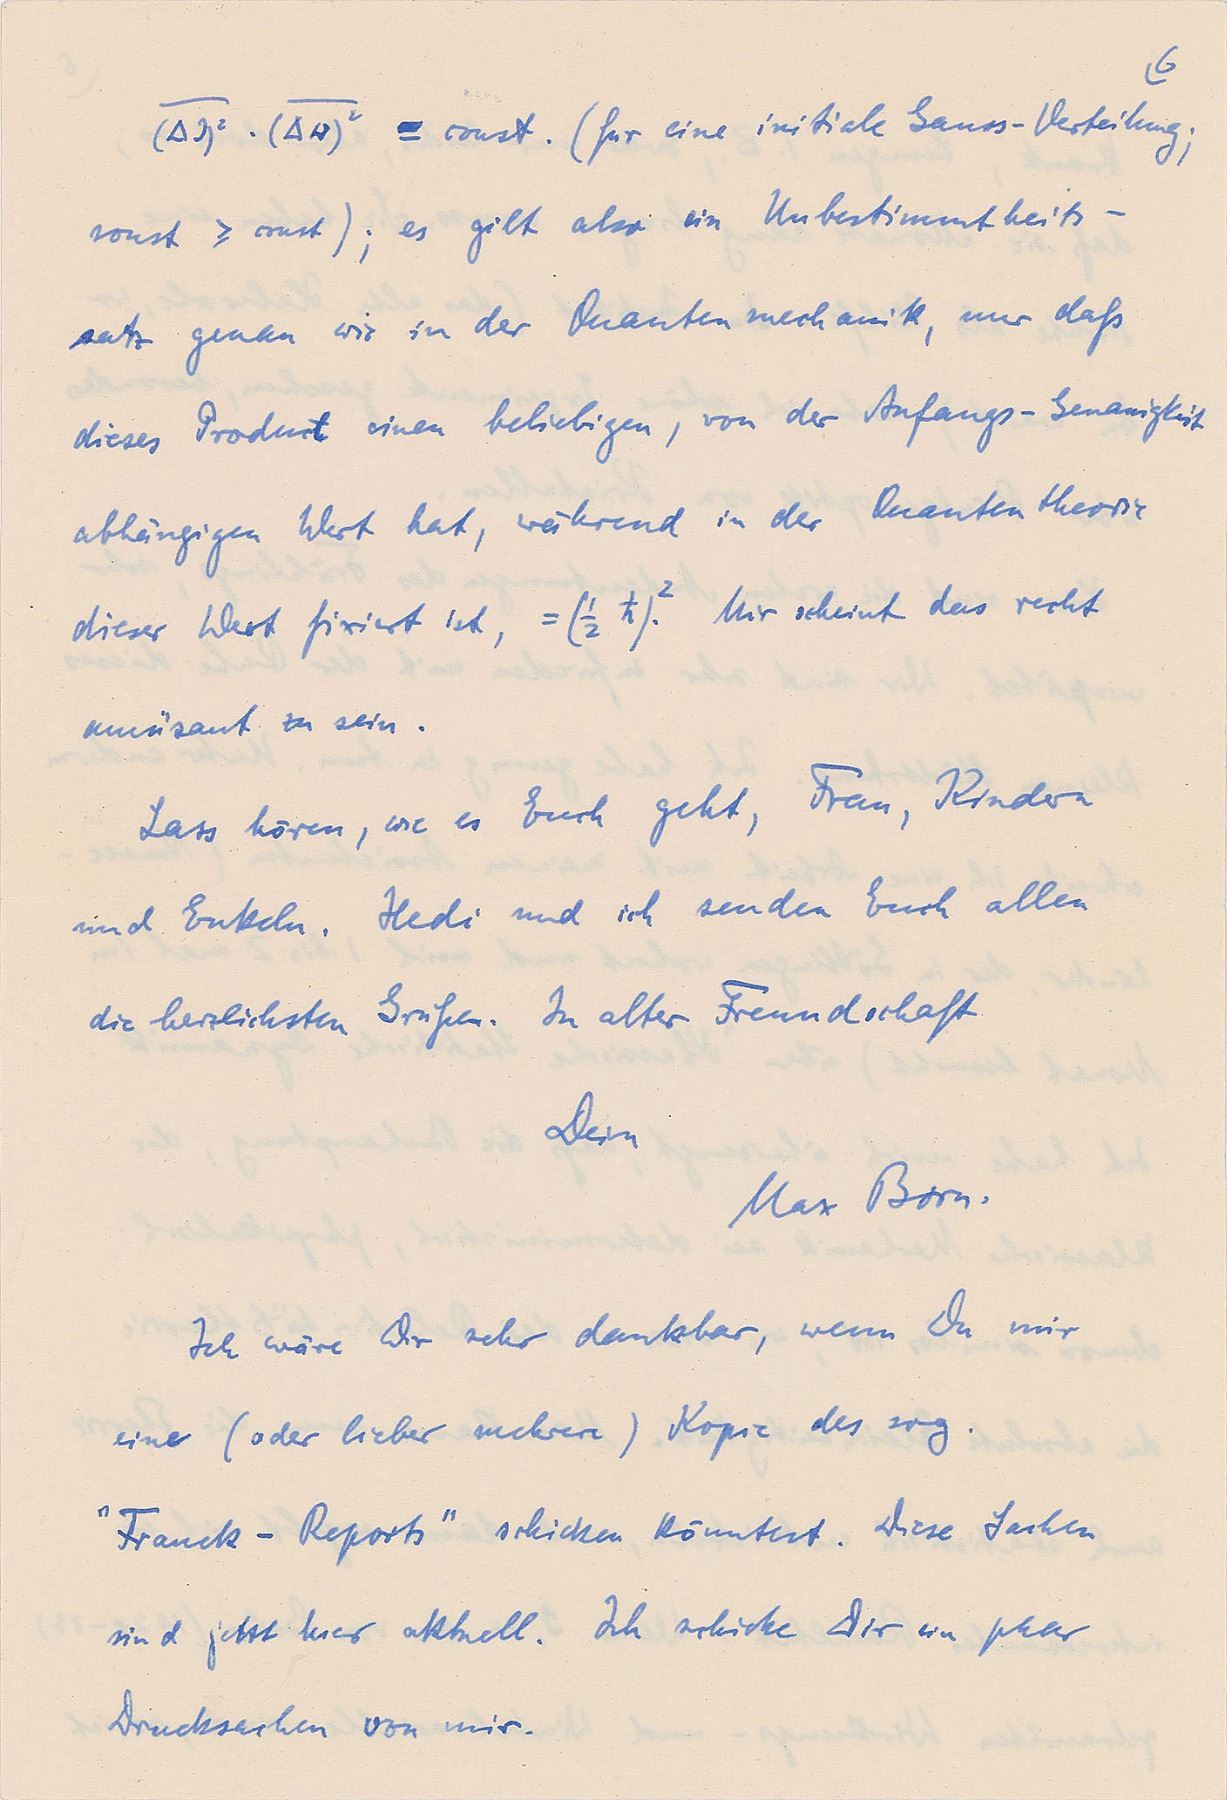 6
(ΔJ)² · (Δw)² = const. (für eine initiale Gauss-Verteilung;
sonst ≥ const); es gilt also ein Unbestimmtheits-
satz genau wie in der Quantenmechanik, nur daß
dieses Product einen beliebigen, von der Anfangs-Genauigkeit
abhängigen Wert hat, während in der Quantentheorie
dieser Wert fixiert ist, = (½ ħ)². Mir scheint das recht
amüsant zu sein.
Lass hören, wie es Euch geht, Frau, Kindern
und Enkeln. Hedi und ich senden Euch allen
die herzlichsten Grüße. In alter Freundschaft
Dein
Max Born.
Ich wäre Dir sehr dankbar, wenn Du mir
eine (oder lieber mehrere) Kopie des sog.
"Franck-Reports" schicken könntest. Diese Sachen
sind jetzt hier aktuell. Ich schicke Dir ein paar
Drucksachen von mir.